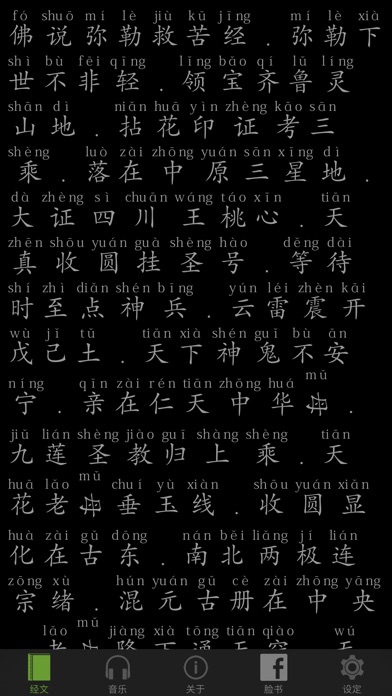 fó shuō mí lè jiù kǔ jīng mí lè xià
佛说弥勒救苦经．弥勒下
shì bù fēi qīng lǐng bǎo qí lǔ líng
世不非轻．领宝齐鲁灵
shān dì niān huā yìn zhèng kǎo sān
山地．拈花印证考三
shèng luò zài zhōng yuán sān xīng dì
乘．落在中原三星地．
dà zhèng sì chuān wáng táo xīn tiān
大证四川王桃心．天
zhēn shōu yuán guà shèng hào děng dài
真收圆挂圣号．等待
shí zhì diǎn shén bīng yún léi zhèn kāi
时至点神兵．云雷震开
wù jǐ tǔ tiān xià shén guǐ bù ān
戊己土．天下神鬼不安
níng qīn zài rén tiān zhōng huá mǔ
宁．亲在仁天中华．
jiǔ lián shèng jiào guī shàng shèng tiān
九莲圣教归上乘．天
huā lǎo mǔ chuí yù xiàn shōu yuán xiǎn
花老垂玉线．收圆显
huà zài gǔ dōng nán běi liǎng jí lián
化在古东．南北两极连
zōng xù hún yuán gǔ cè zài zhōng yāng
宗绪．混元古册在中央
lǎo mǔ jiàng xià tōng tiān qiào wú
经文 音乐 关于 脸书 设定